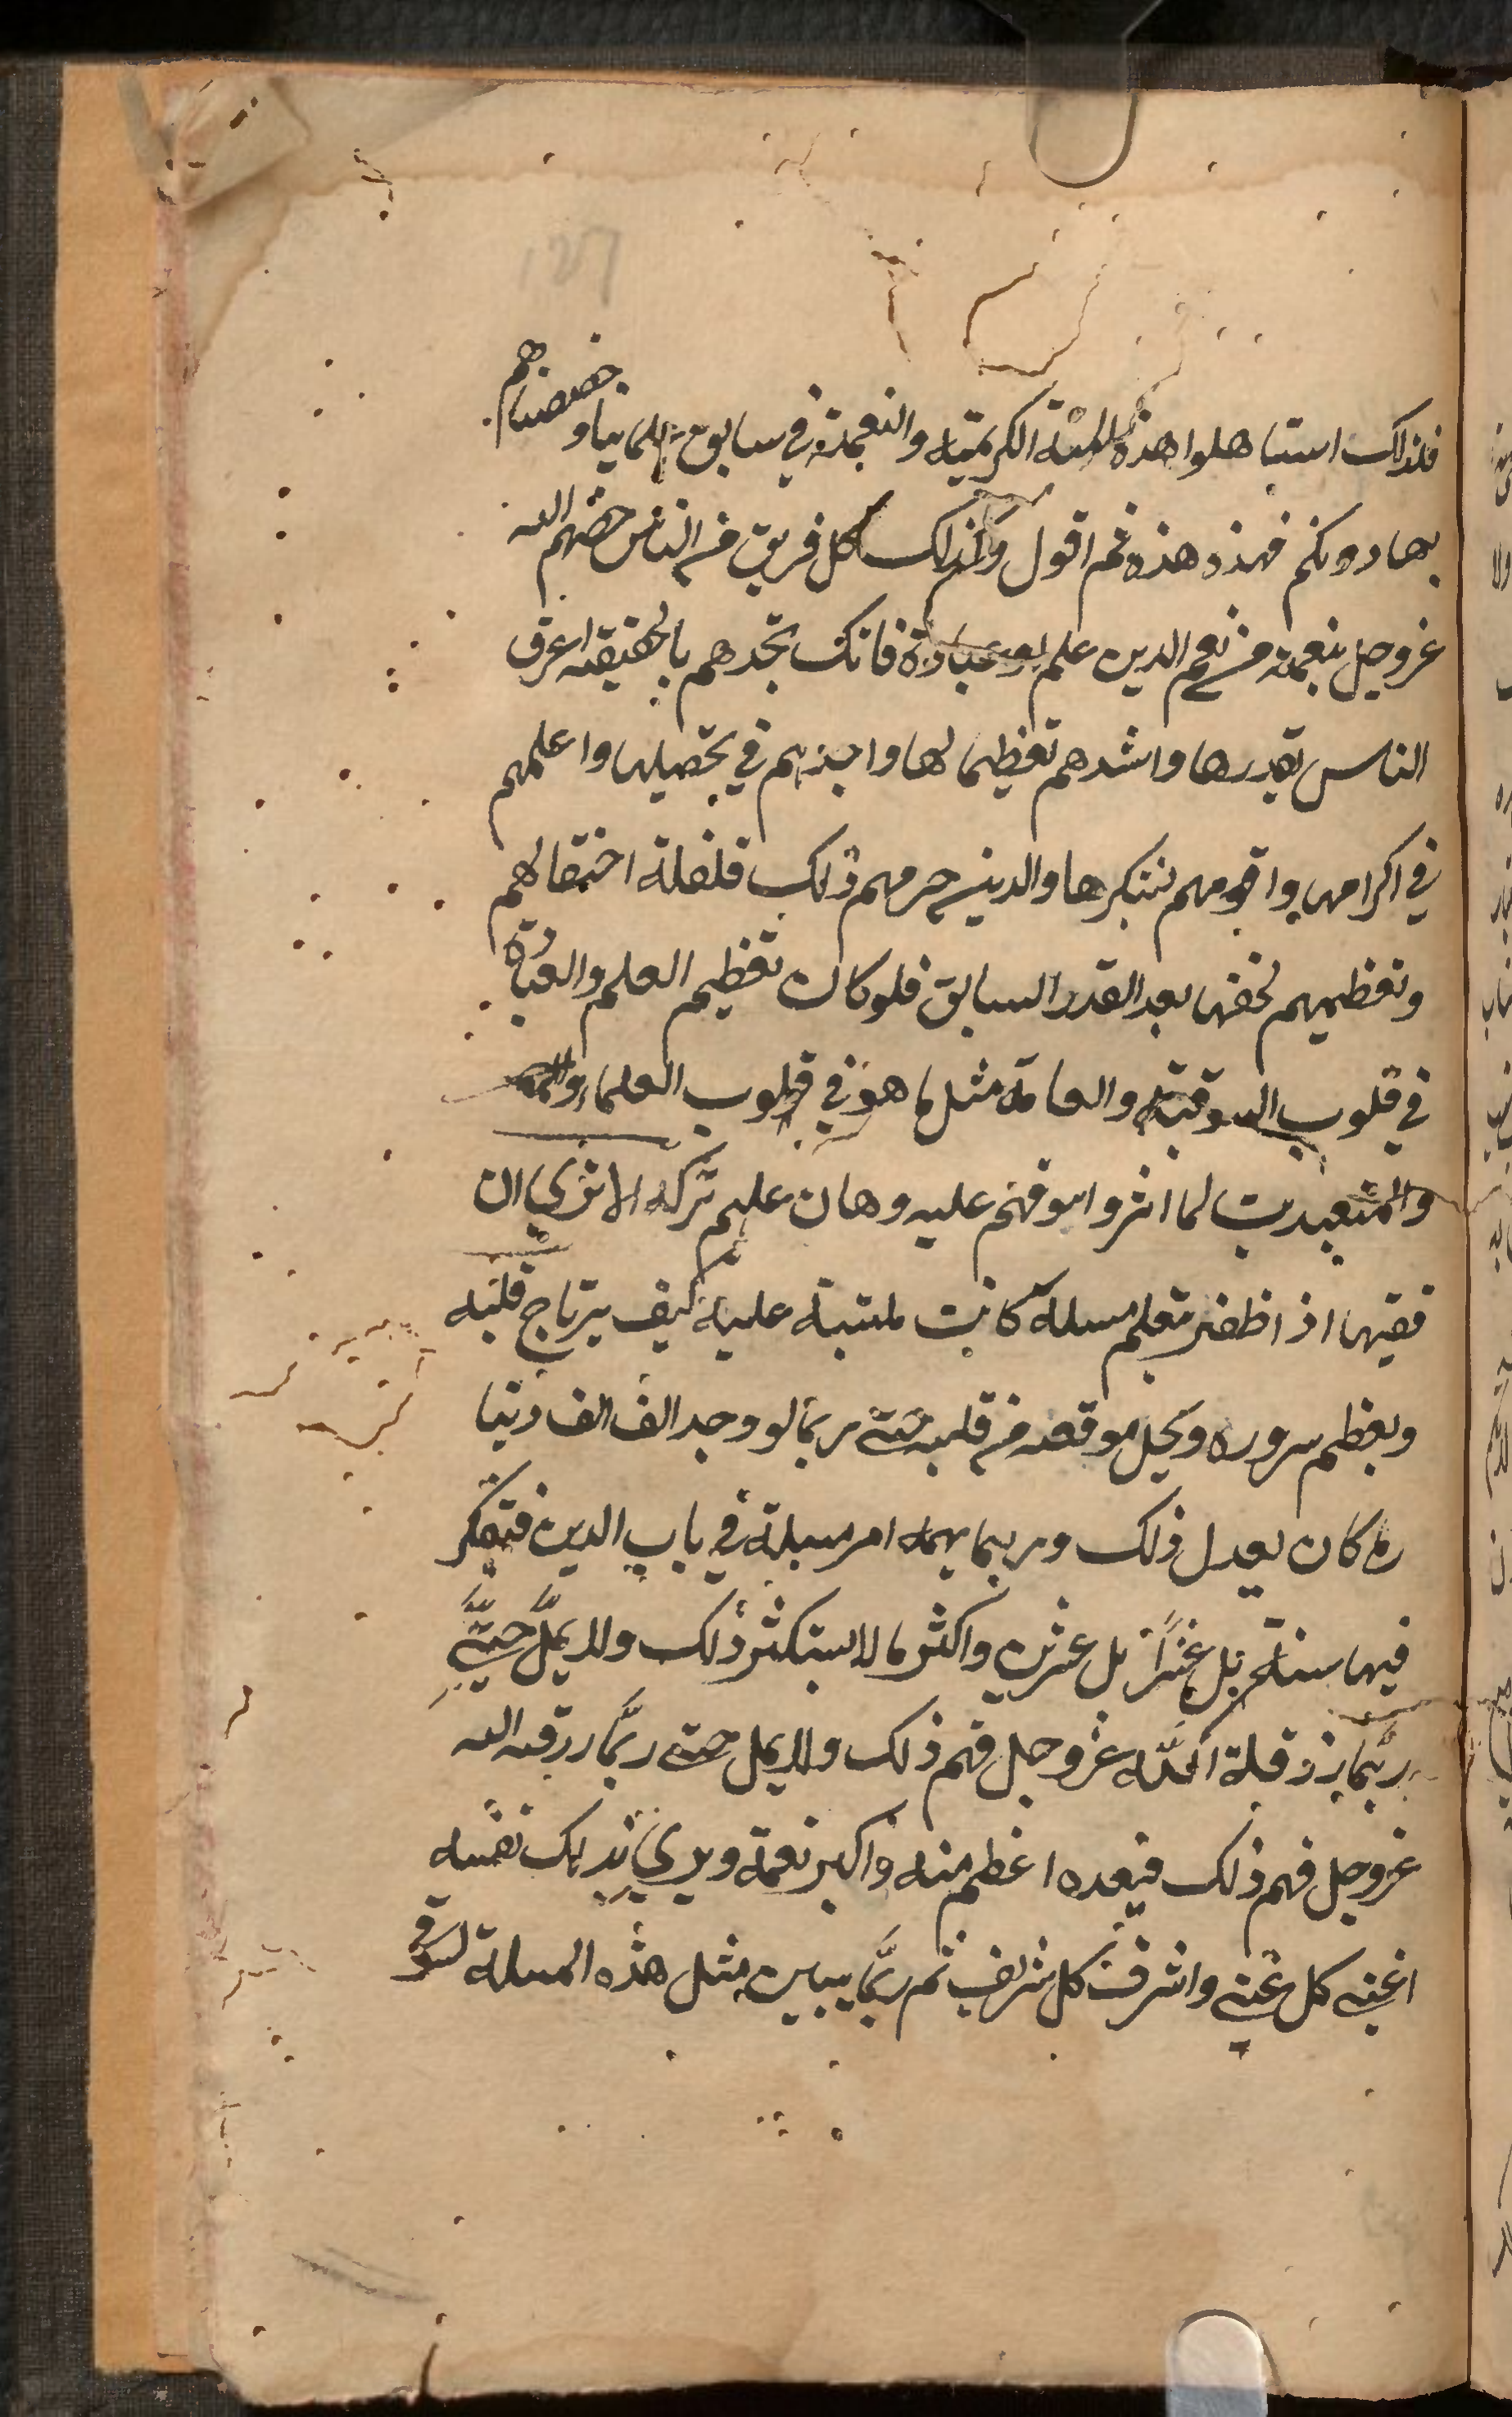 فلذلك استاهلوا هذه المنة الكريمة والنعمة في سابق علمنا وخصصناهم
بها دونكم فهذه هذه ثم اقول وكذلك كل فريق من الناس خصهم الله
عزوجل بنعمة من نعم الدين علم او عبادة فانك تجدهم بالحقيقة اعرف
الناس بقدرها واشدهم تعظيما لها واجدهم في تحصيلها واعلمهم
في اكرامها واقومهم بشكرها والدين حرمهم ذلك فلقلة احتفالهم
وتعظيمهم لحقها بعد القدر السابق فلو كان تعظيم العلم والعبادة
في قلوب السوقة والعامة مثل ما هو في قلوب العلماء
والمتعبدين لما اثروا سوقهم عليه وهان عليهم تركه الا ترى ان
فقيها اذا ظفر بتعلم مسلة كانت ملتبسة عليه كيف يرتاح قلبه
ويعظم سروره ويجل موقعه من قلبه حتى ربما لو وجد الف الف دينا
ره كان يعدل ذلك وربما يهمه امر مسلة في باب الدين فتفكر
فيها سنة بل عشرا بل عشرين واكثر ما لا يستكثر ذلك ولا يمل حتى
ربما عزوجل فهم ذلك ولا يمل حتى ربما رزقه الله
عزوجل فهم ذلك فيعده اعظم منة واكبر نعمة ويرى بذلك نفسه
اغنى كل غني واشرف كل شريف ثم ربما يبين مثل هذه المسلة لسوقي